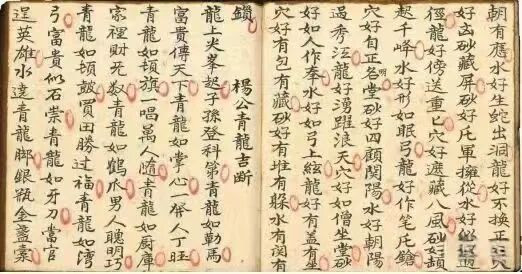 朝有應水好生蛇出洞龍好不換正
好凸砂藏屏砂好氏軍擁從水好似
徑龍好傍送重乜穴好遮藏八風砂好
起千峰水好形如眠弓龍好作笔氏鎗
穴好自正名堂砂好四顧関陽水好朝陽
過秀江龍好湧躍浪天穴好如僧坐堂砂
好如人作奉水好如弓上絃龍好有盖有坐
穴好有包有藏砂好有堆有躲水有関有
鎖 楊公青龍吉断
龍上火峯起子孫登科第青龍如勒馬
富貴傳天下青龍如掌心一發人丁旺
青龍如頓旗一唱萬人隨青龍如厨庫
家裡財无数青龍如鶴爪男人聰明巧
青龍如頓皷買田勝过福青龍如湾
弓富貴似石崇青龍如牙刀當官
逞英雄水遶青龍脚銀瓶金盞案